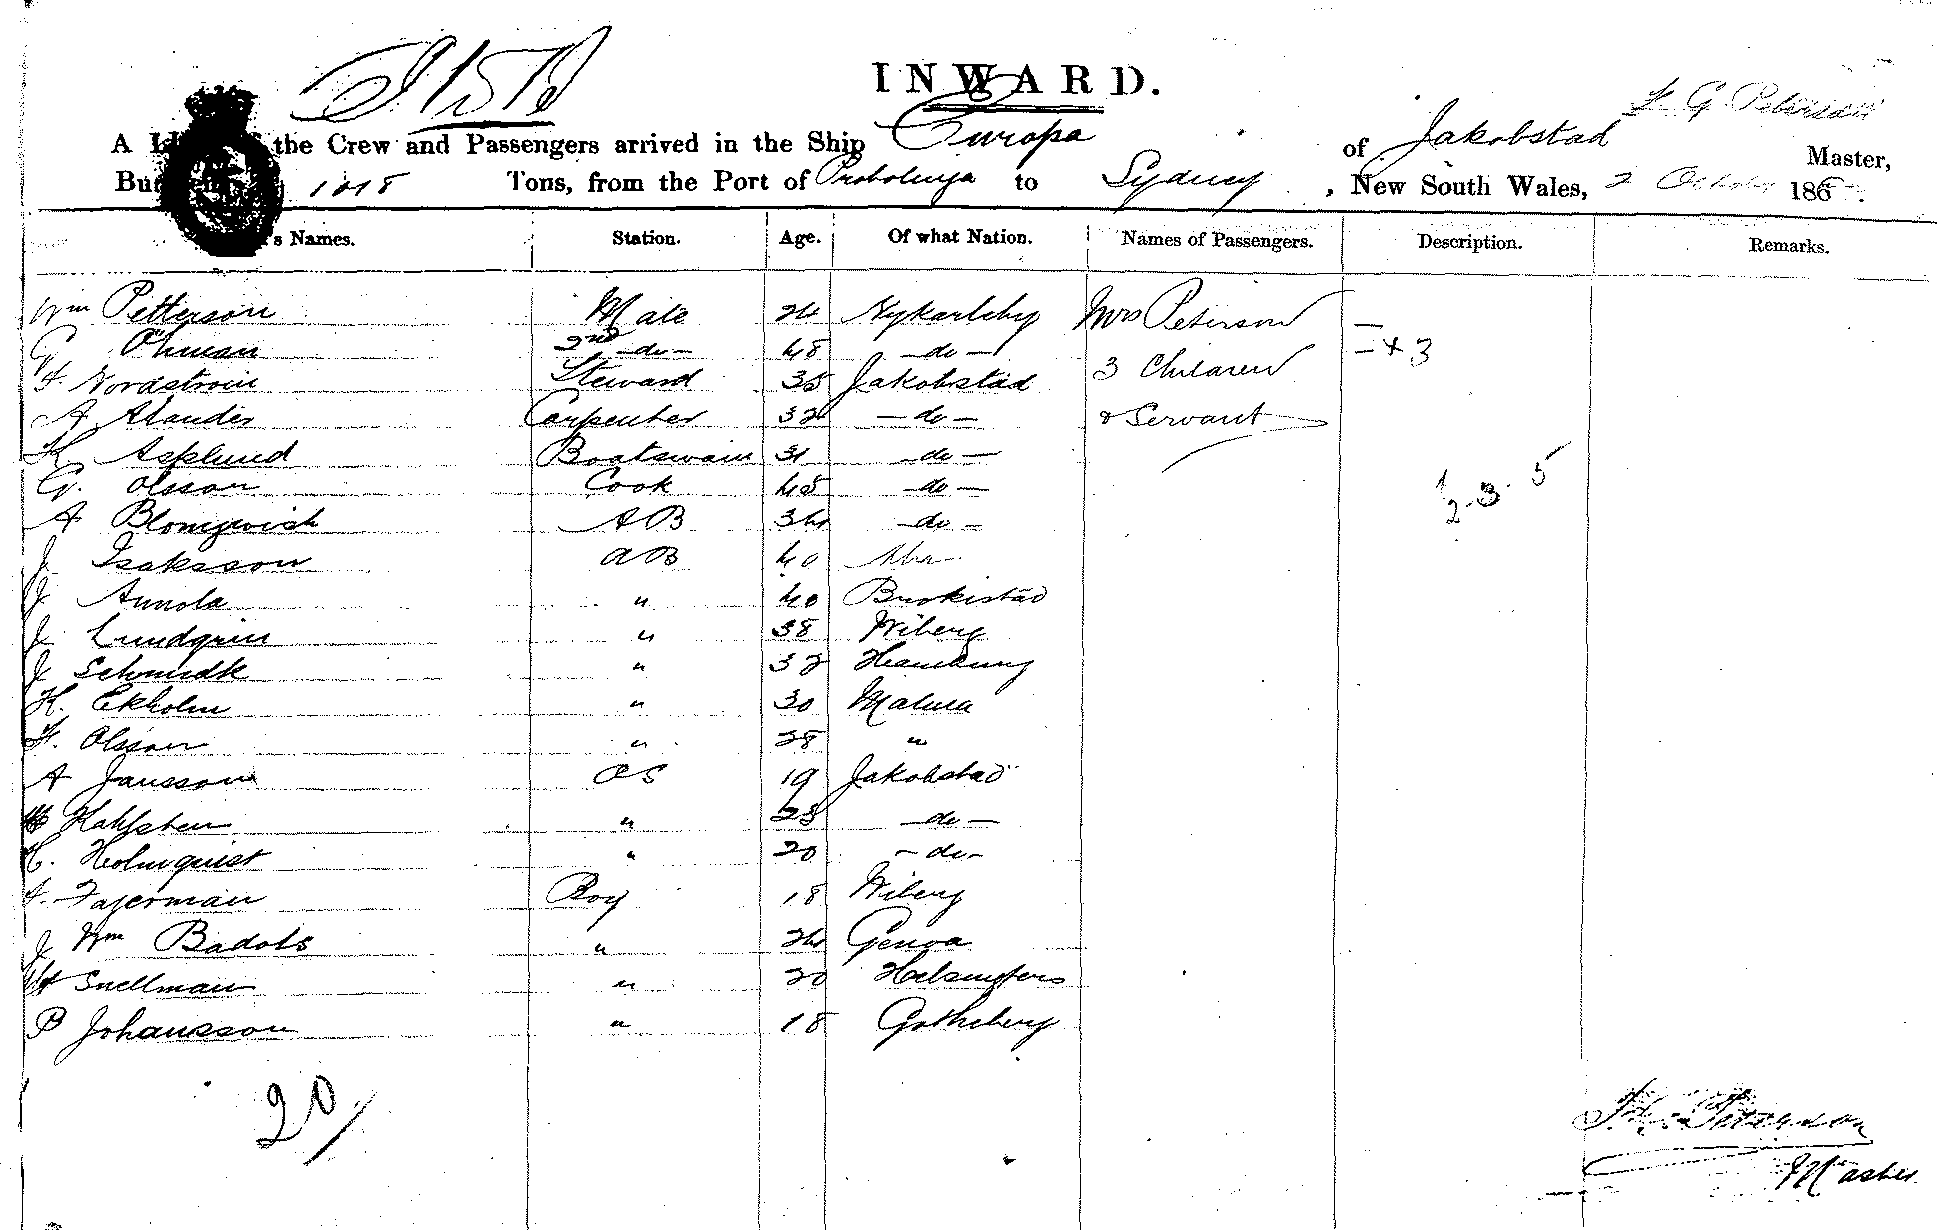 INWARD.
F. G. Peterson
A Li the Crew and Passengers arrived in the Ship Europa of Jakobstad Master,
Bu 1018 Tons, from the Port of Probolinga to Sydney, New South Wales, 2 October 186
's Names. Station. Age. Of what Nation. Names of Passengers. Description. Remarks.
Wm Petterson Mate 24 Nykarleby Mrs Peterson —
G Öhman 2nd —do— 48 —do— 3 Children —+3
F. Nordstrom Steward 35 Jakobstad
A Alander Carpenter 32 —do— & Servant
K Asplund Boatswain 31 —do—
G. Olsson Cook 45 —do— 1/2-3-5
A Blomqvish AB 34 —do—
J. Isaksson AB 40 Abo
J Annola " 40 Brokistad
J. Lundgrin " 38 Wiberg
J Schmidt " 32 Hamburg
K. Ekholm " 30 Malma
F. Olsson " 28 "
A Jansson OS 19 Jakobstad
Kahlsten " 23 —do—
H. Holmquist " 20 —do—
F. Fagerman Boy 18 Wiberg
J Wm Badots " 24 Genoa
Snellman " 20 Helsingfors
B Johansson " 18 Gotheberg
20/
F. G. Peterson
Master